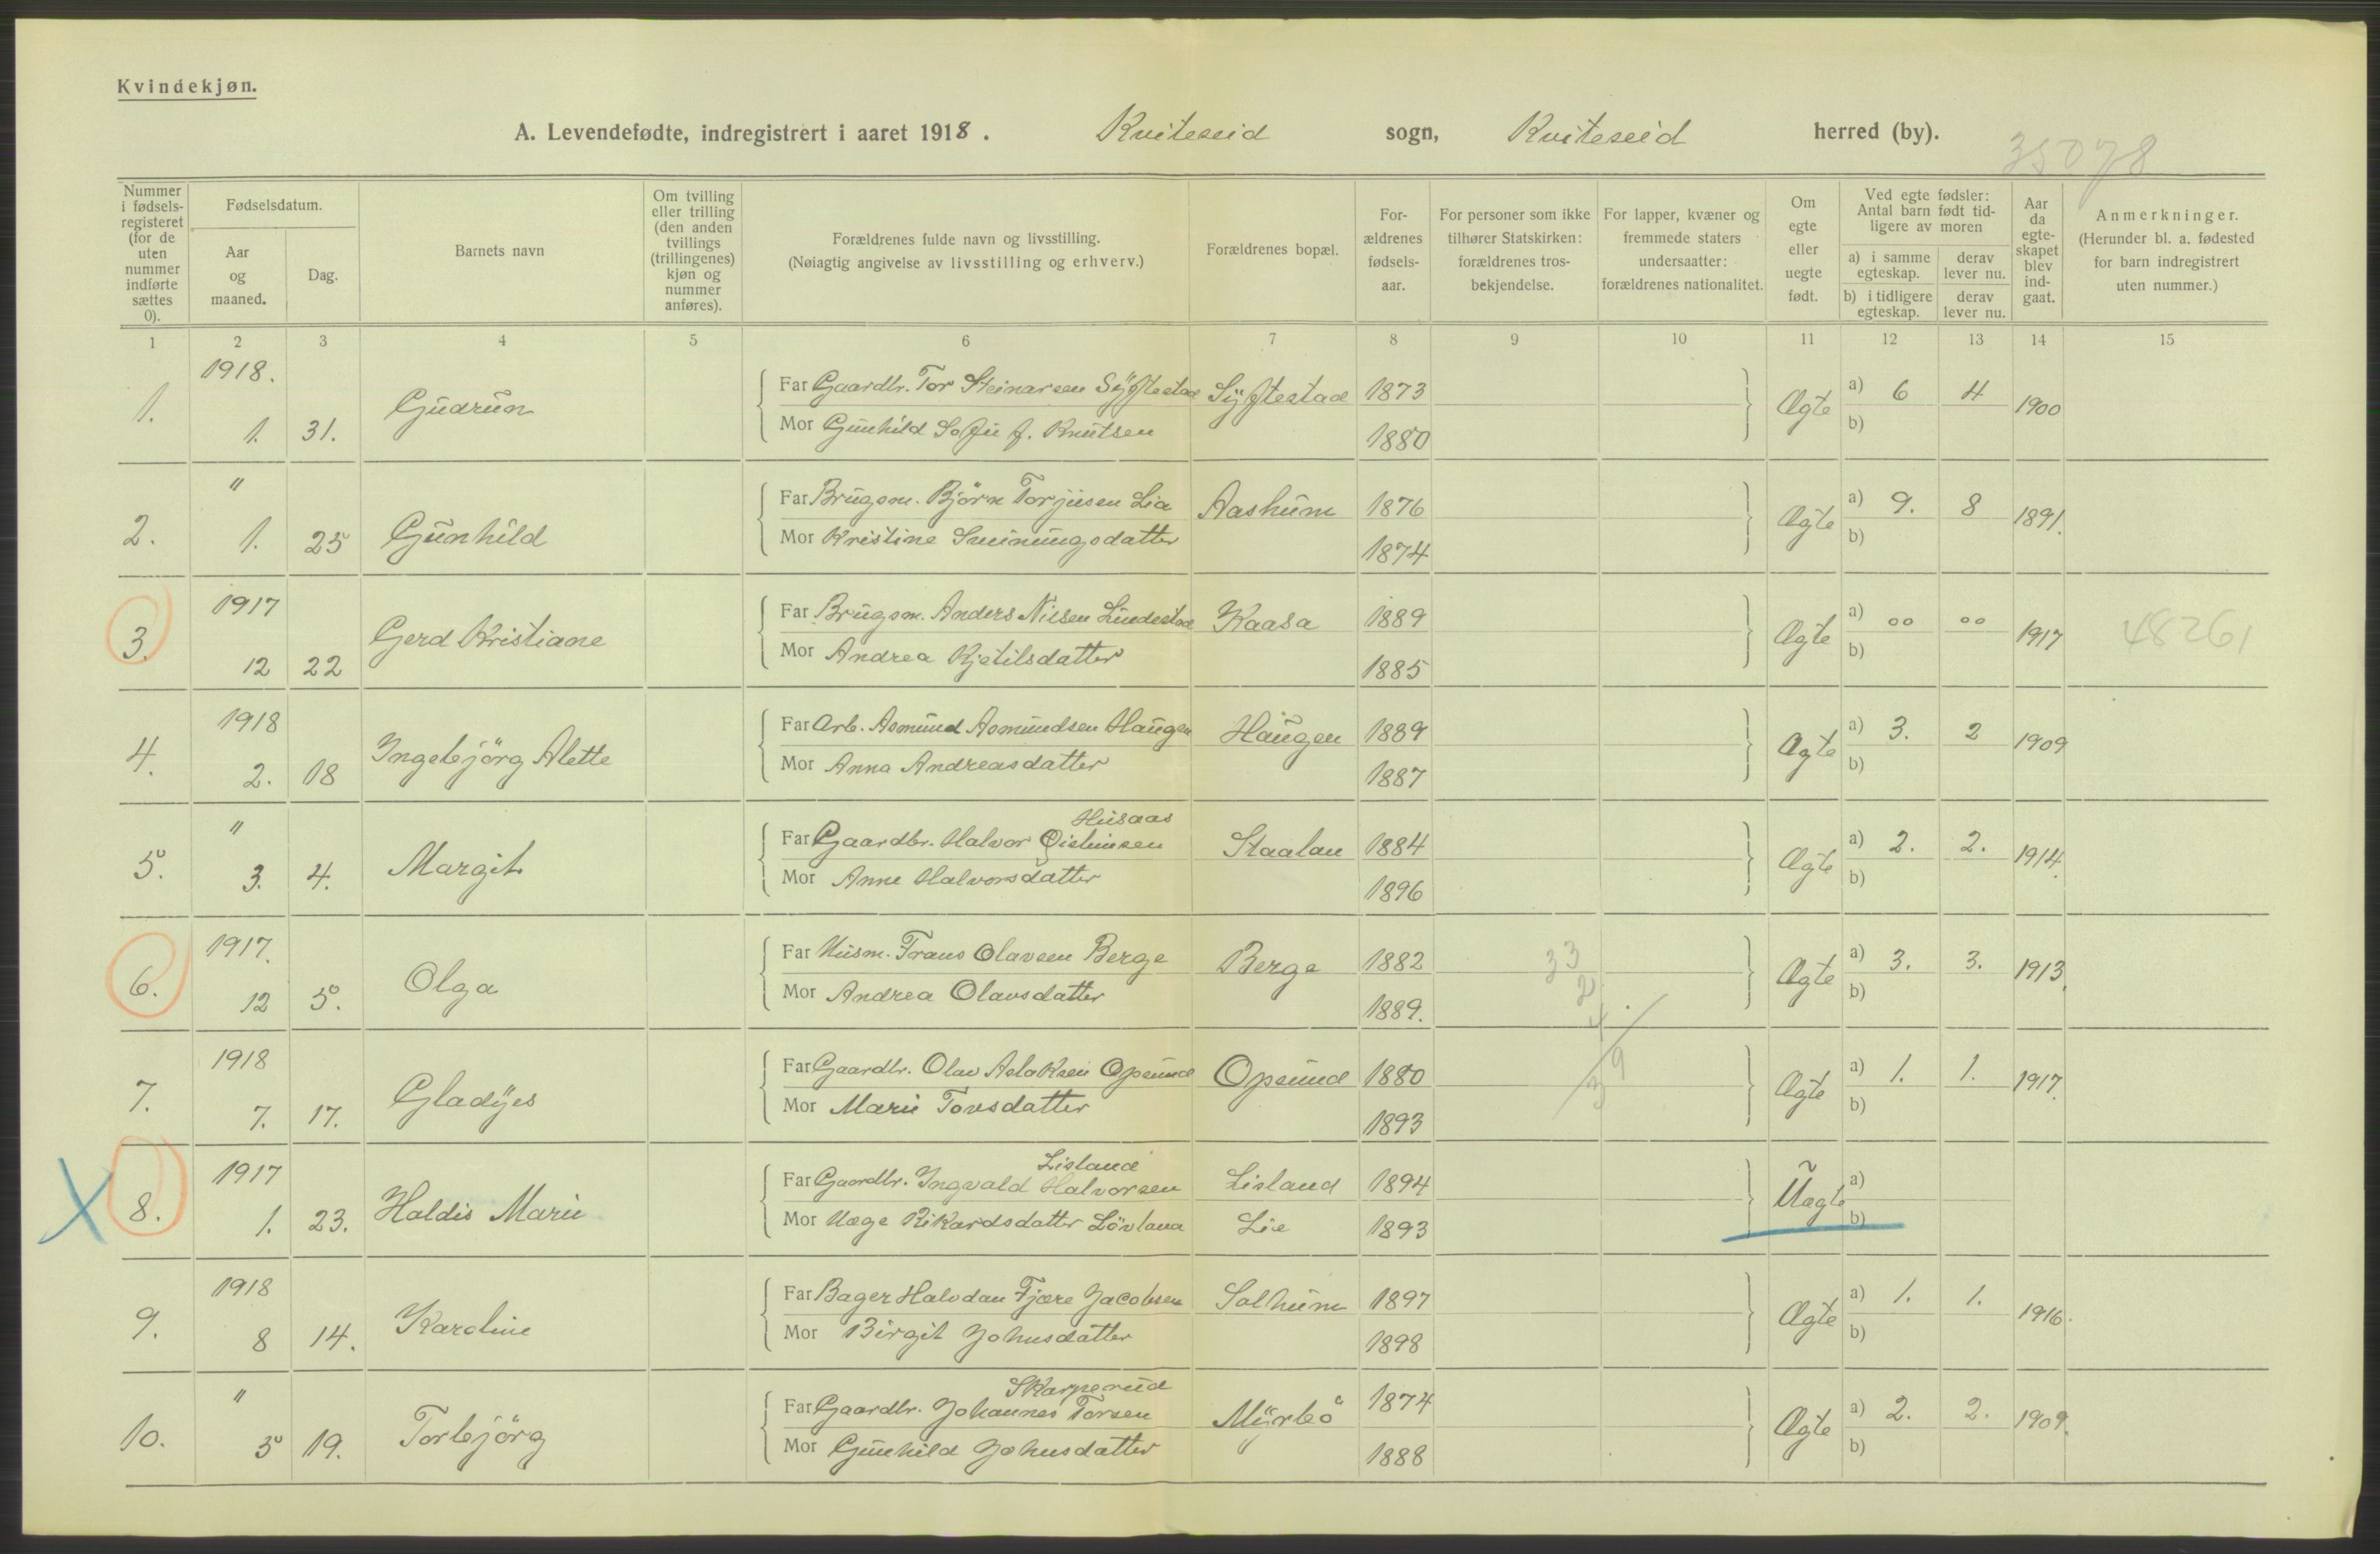 Kvindekjøn.
A. Levendefødte, indregistrert i aaret 1918. Kviteseid sogn, Kviteseid herred (by).
35078
Nummer i fødsels-registeret (for de uten nummer indførte sættes 0).
Fødselsdatum.
Aar og maaned.
Dag.
Barnets navn
Om tvilling eller trilling (den anden tvillings (trillingenes) kjøn og nummer anføres).
Forældrenes fulde navn og livsstilling. (Nøiagtig angivelse av livsstilling og erhverv.)
Forældrenes bopæl.
For-ældrenes fødsels-aar.
For personer som ikke tilhører Statskirken: forældrenes tros-bekjendelse.
For lapper, kvæner og fremmede staters undersaatter: forældrenes nationalitet.
Om egte eller uegte født.
Ved egte fødsler: Antal barn født tid-ligere av moren
a) i samme egteskap.
derav lever nu.
b) i tidligere egteskap.
derav lever nu.
Aar da egte-skapet blev ind-gaat.
Anmerkninger. (Herunder bl. a. fødested for barn indregistrert uten nummer.)
1 2 3 4 5 6 7 8 9 10 11 12 13 14 15
1918.
1. 1. 31. Gudrun
Far Gaardbr. Tor Steinarsen Sÿftestad Sÿftestad 1873 Ægte a) 6 4 1900
Mor Gunhild Sofie f. Knutsen 1880 b)
"
2. 1. 25 Gunhild
Far Brugsm. Björn Torjusen Lia Aashum 1876 Ægte a) 9. 8 1891.
Mor Kristine Sveinungsdatter 1874 b)
1917
3. 12 22 Gerd Kristiane
Far Brugsm. Anders Nilsen Lundestad Kaasa 1889 Ægte a) 00 00 1917 48261
Mor Andrea Kjetilsdatter 1885 b)
1918
4. 2. 18 Ingebjörg Alette
Far Arb. Asmund Asmundsen Haugen Haugen 1889 Ægte a) 3. 2 1909
Mor Anna Andreasdatter 1887 b)
"
5. 3. 4. Margit
Husaas
Far Gaardbr. Halvor Staalan 1884 Ægte a) 2. 2. 1914.
Mor Anne Halvorsdatter 1896 b)
1917.
6. 12 5. Olga
Far Husm. Frans Olavsen Berge Berge 1882 33 Ægte a) 3. 3. 1913.
Mor Andrea Olavsdatter 1889. 2 b)
4
1918
7. 7. 17. Gladÿes
Far Gaardbr. Olav Aslaksen Opsund Opsund 1880 39 Ægte a) 1. 1. 1917.
Mor Marie Tovsdatter 1893 b)
1917
X 8. 1. 23. Haldis Marie
Lisland
Far Gaardbr. Ingvald Halvorsen Lisland 1894 Uægte a)
Mor Rikardsdatter Lövland Lie 1893 b)
1918
9. 8 14. Karoline
Far Bager Halvdan Fjære Jacobsen Solhum 1897 Ægte a) 1. 1. 1916.
Mor Birgit Johnsdatter 1898 b)
"
10. 5 19. Torbjörg
Skarperud
Far Gaardbr. Johannes Torsen Mÿrbö 1874 Ægte a) 2. 2. 1909.
Mor Gunhild Johnsdatter 1888 b)